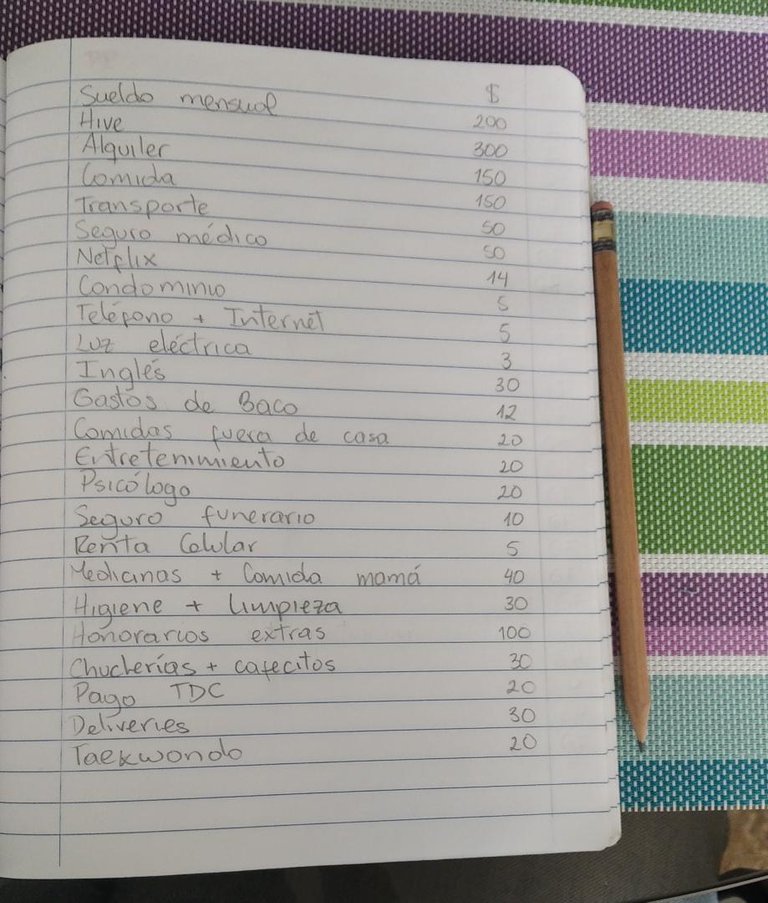 Sueldo mensual
Hive
Alquiler
Comida
Transporte
Seguro médico
Netflix
Condominio
Teléfono + Internet
Luz eléctrica
Inglés
Gastos de Baco
Comidas fuera de casa
Entretenimiento
Psicólogo
Seguro funerario
Renta Celular
Medicinas + Comida mamá
Higiene + limpieza
Honorarios extras
Chucherías + cafecitos
Pago TDC
Deliveries
Taekwondo
$
200
300
150
150
50
50
14
5
5
3
30
12
20
20
20
10
5
40
30
100
30
20
30
20